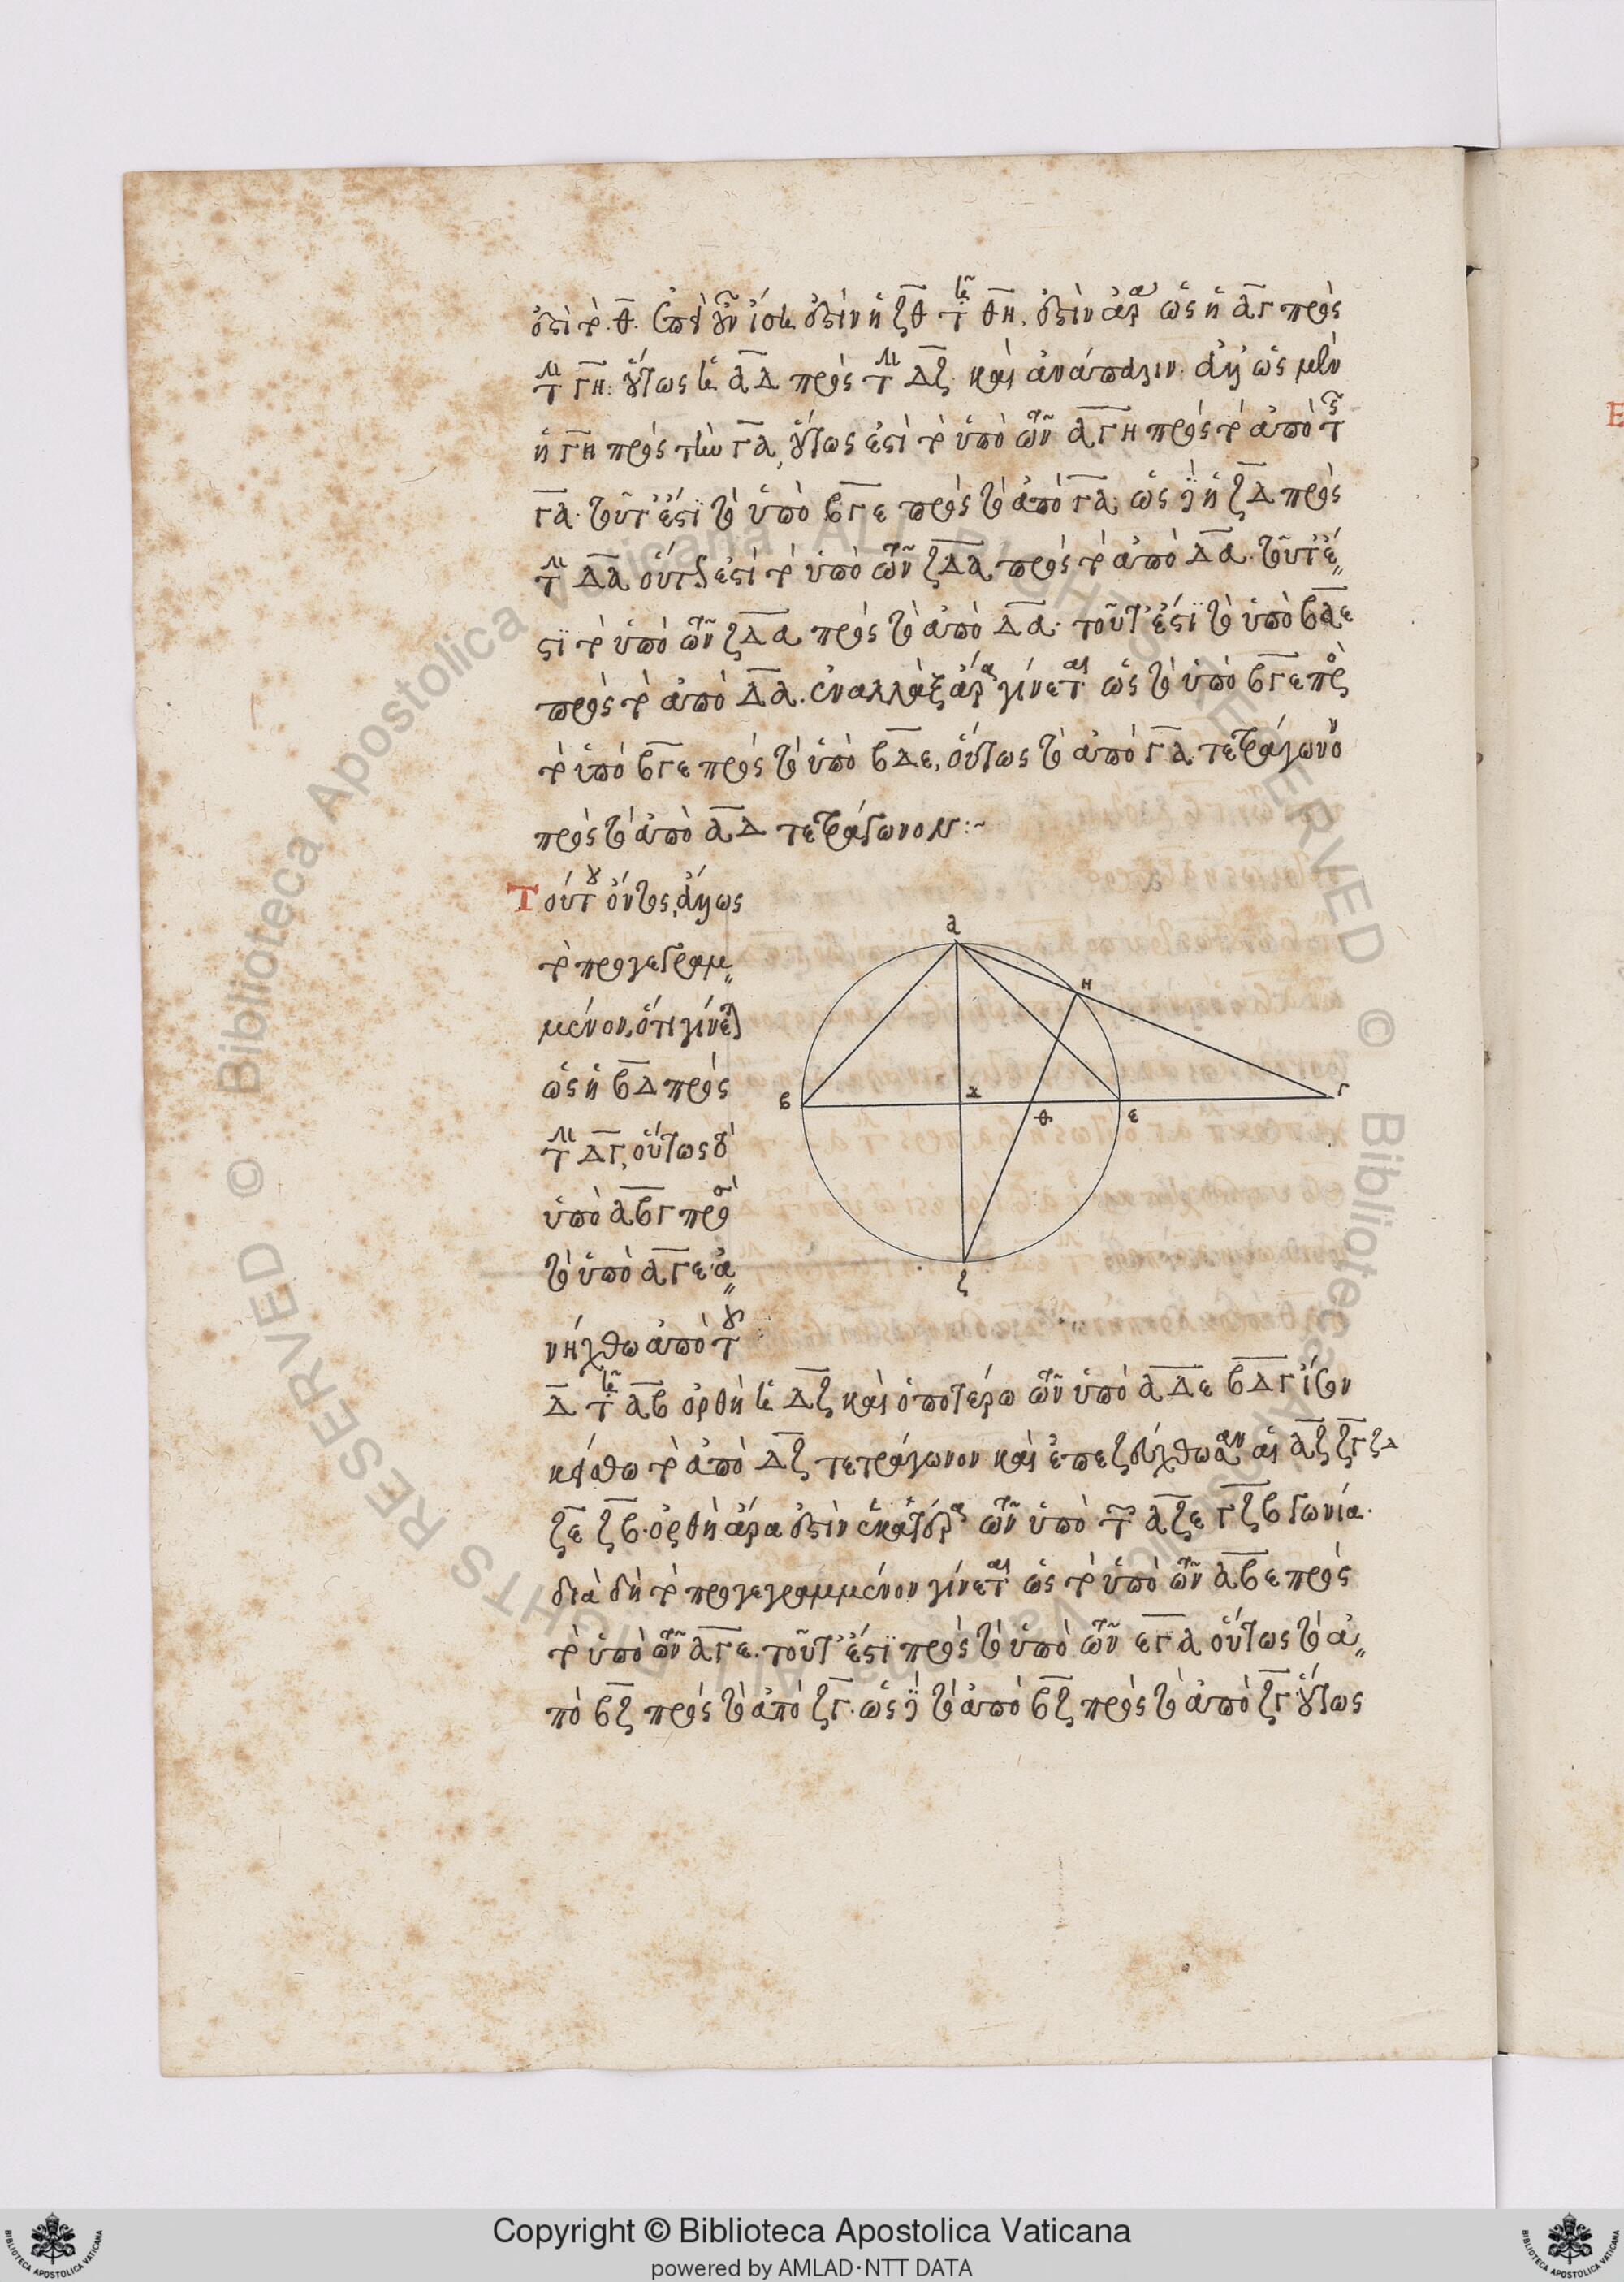 ἐστὶ τὸ Θ. ἐπεὶ οὖν ἴση ἐστὶν ἡ ΖΘ τῇ ΘΗ, ἔστιν ἄρα ὡς ἡ ΑΓ πρὸς
τὴν ΓΗ. οὕτως ἡ ΑΔ πρὸς τὴν ΔΖ. καὶ ἀνάπαλιν. ἀλλ' ὡς μὲν
ἡ ΓΗ πρὸς τὴν ΓΑ, οὕτως ἐστὶ τὸ ὑπὸ τῶν ΑΓΗ πρὸς τὸ ἀπὸ τῆς
ΓΑ. τοῦτ' ἔστι τὸ ὑπὸ ΒΓΕ πρὸς τὸ ἀπὸ ΓΑ. ὡς δὲ ἡ ΖΔ πρὸς
τὴν ΔΑ οὕτως ἐστὶ τὸ ὑπὸ τῶν ΖΔΑ πρὸς τὸ ἀπὸ ΔΑ. τοῦτ' ἔ
στι τὸ ὑπὸ τῶν ΖΔΑ πρὸς τὸ ἀπὸ ΔΑ. τοῦτ' ἔστι τὸ ὑπὸ ΒΔΕ
πρὸς τὸ ἀπὸ ΔΑ. ἐναλλὰξ ἄρα γίνεται ὡς τὸ ὑπὸ ΒΓΕ πρὸς
τὸ ὑπὸ ΒΓΕ πρὸς τὸ ὑπὸ ΒΔΕ, οὕτως τὸ ἀπὸ ΓΑ τετράγωνον
πρὸς τὸ ἀπὸ ΑΔ τετράγωνον:~
Τούτου ὄντος, ἄλλως
τὸ προγεγραμ
μένον, ὅτι γίνεται
ὡς ἡ ΒΔ πρὸς
τὴν ΔΓ, οὕτως τὸ
ὑπὸ ΑΒΓ πρὸς
τὸ ὑπὸ ΑΓΕ. ἀ
νήχθω ἀπὸ τοῦ
Δ τῇ ΑΒ ὀρθὴ ἡ ΔΖ καὶ ὁποτέρῳ τῶν ὑπὸ ΑΔΕ ΒΔΓ ἴσον
κείσθω τὸ ἀπὸ ΔΖ τετράγωνον καὶ ἐπεζεύχθωσαν αἱ ΑΖ ΖΓ ΖΔ
ΖΕ ΖΒ. ὀρθὴ ἄρα ἐστὶν ἑκατέρα τῶν ὑπὸ ΑΖΕ ΓΖΒ γωνία.
διὰ δὴ τὸ προγεγραμμένον γίνεται ὡς τὸ ὑπὸ τῶν ΑΒΕ πρὸς
τὸ ὑπὸ τῶν ΑΓΕ. τοῦτ' ἔστι πρὸς τὸ ὑπὸ τῶν ΕΓΑ οὕτως τὸ ἀ
πὸ ΒΖ πρὸς τὸ ἀπὸ ΖΓ. ὡς δὲ τὸ ἀπὸ ΒΖ πρὸς τὸ ἀπὸ ΖΓ οὕτως
Α
Η
Β
Θ
Ε
Γ
Ζ
Ε
© Biblioteca Apostolica Vaticana · ALL RIGHTS RESERVED © Biblioteca Apostolica Vaticana · ALL RIGHTS RESERVED
BIBLIOTECA APOSTOLICA VATICANA
Copyright © Biblioteca Apostolica Vaticana
powered by AMLAD·NTT DATA
BIBLIOTECA APOSTOLICA VATICANA